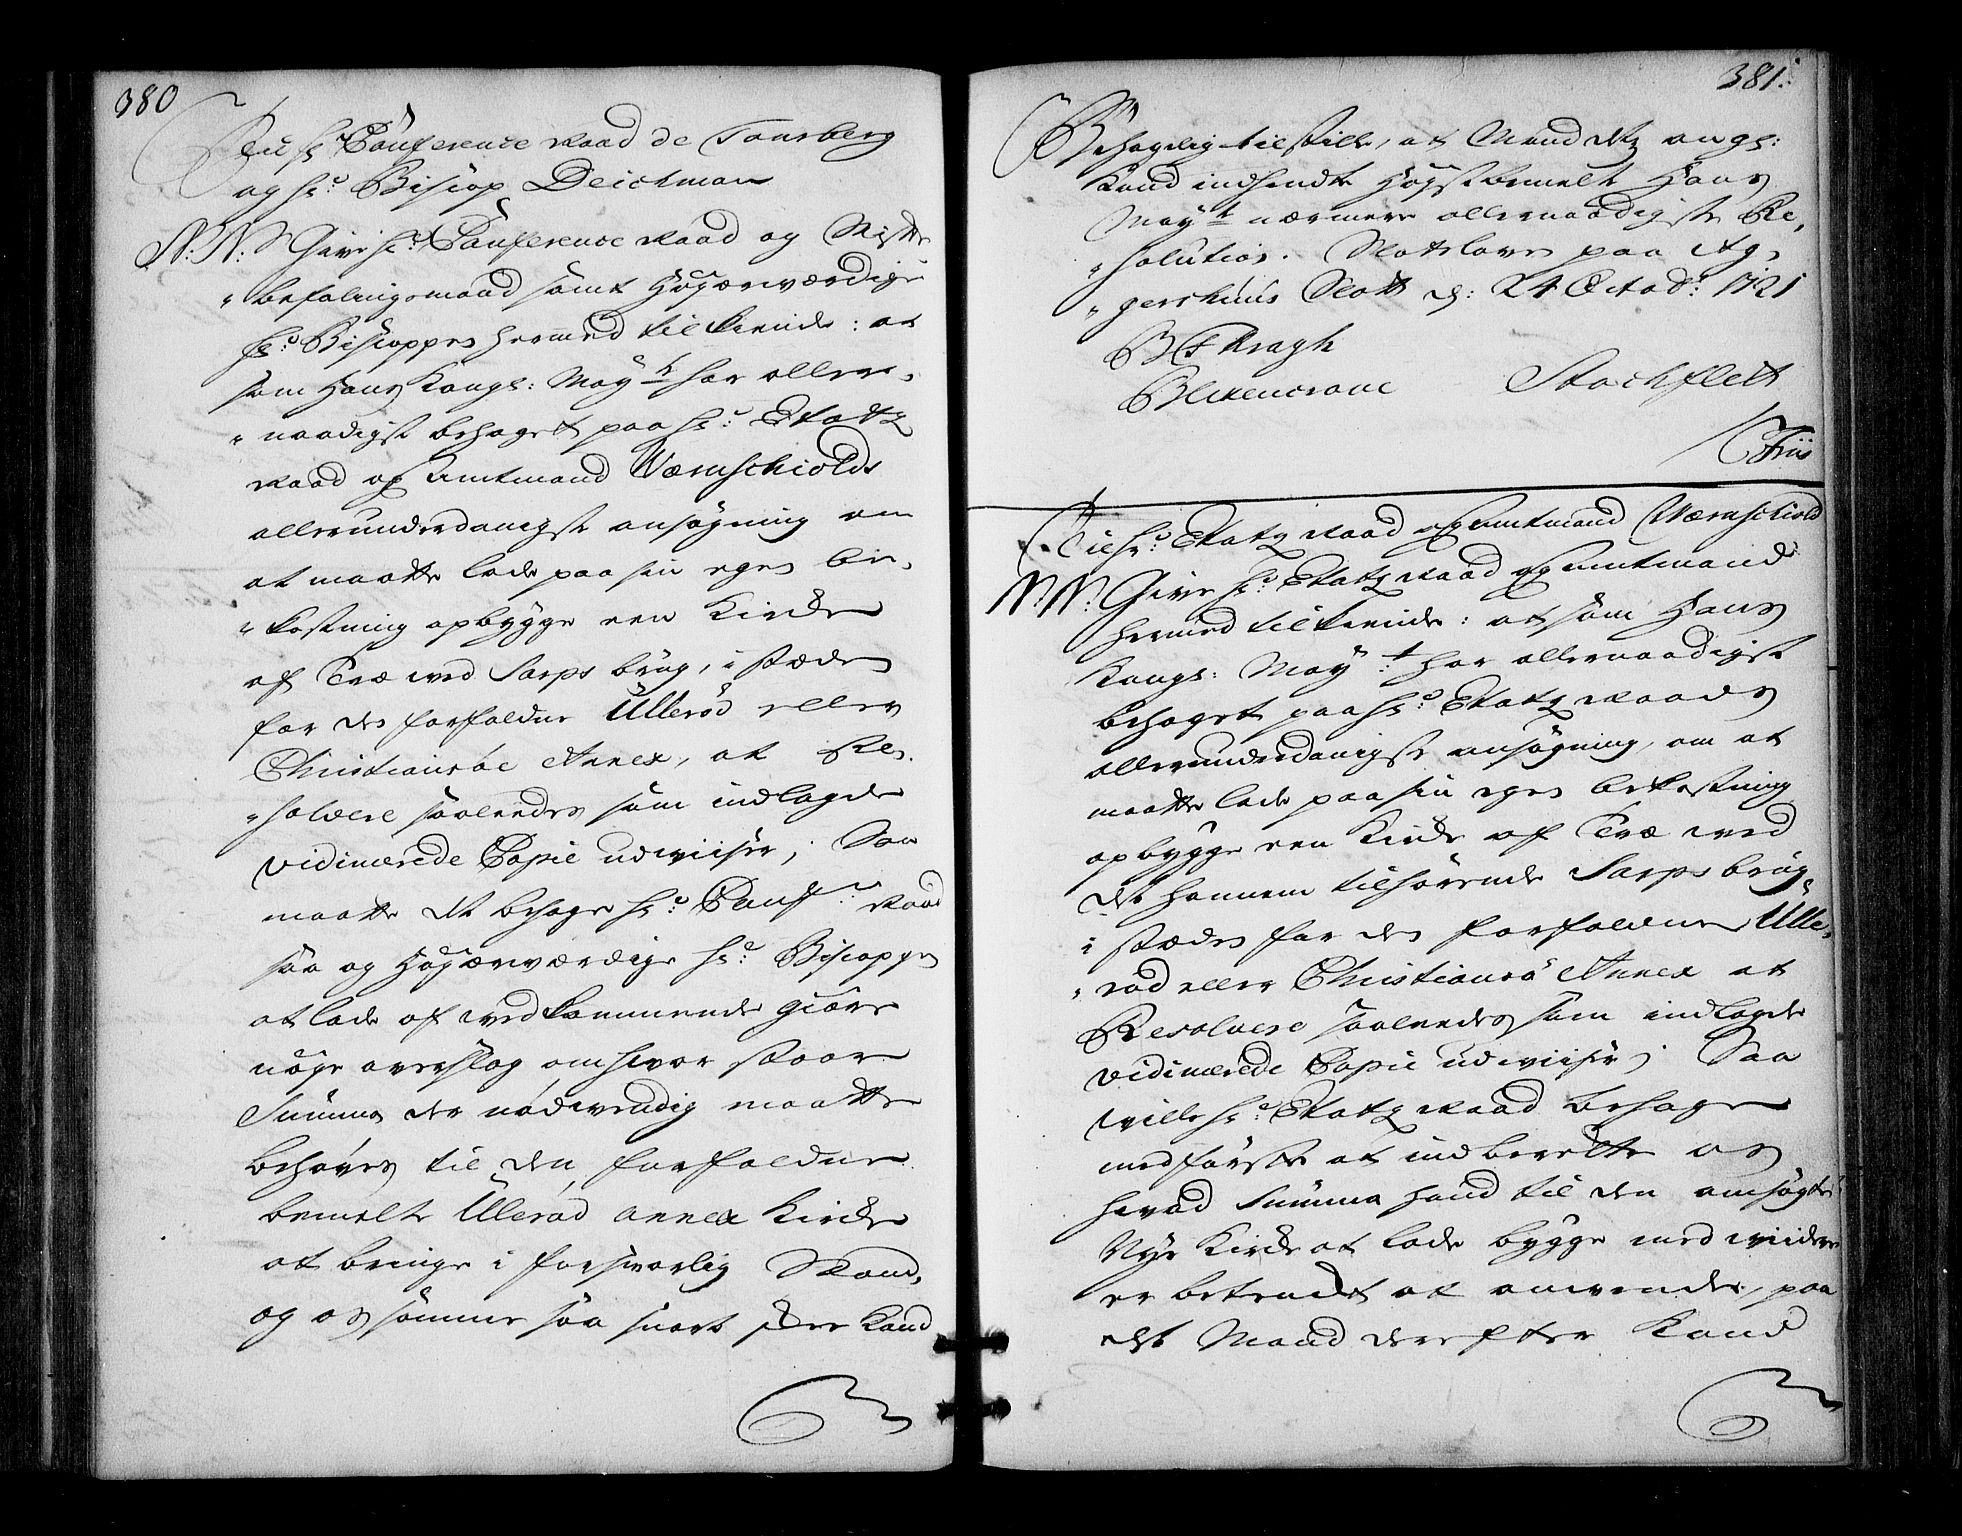 380
Til hr: Conference Raad de Tonsberg
og hr: Biscop Deichman
N: N: Give hr: Conference Raad og Stift
befalingsmand samt Høyærværdige
hr: Bisoppen hermed tilkiende: at
som Hans Kongl: Mayt: har aller-
naadigst behaget paa hr: Etatz
Raad og Amtmand Wærnschiolds
allerunderdanigste ansøgning om
at maatte lade paa sin egen be-
kostning opbygge een Kircke
af Træ ved Sarps brug, i stæden
for den forfaldne Ullerød eller
Christiansøe Annex, at Re-
solvere saaledes som indlagde
vidimerede Copie udviiser; Saa
maatte det behage hr: Conf: Raad
saa og Høyærværdige hr: Biscoppen
at lade af vedkommende giøre
nøye overslag om hvor stoor
Summa der nødvendig maatte
behøves til den forfaldne
bemelte Ullerød annex Kircke
at bringe i forsvarlig Stand,
og os samme saa snart skee kand
381.
Behagelig tilstille, at Mand detz angl:
Kand indsende Høystbemelte Hans
Mayt: nærmere allernaadigste Re-
solution. Slotsloven paa Ag-
gershuus Slott d: 24 Octobr: 1721
B F Kragh
Blixencrone Stockflett
C Friis
Til hr: Etatz Raad og Amtmand Wærnschiold
N: N: Give hr: Etatz Raad og Amtmand
hermed tilkiende: at som Hans
Kongl: Mayt: har allernaadigst
behaget paa hr: Etatz Raads
allerunderdanigste ansøgning, om at
maatte lade paa sin egen bekostning
opbygge een Kircke af Træ ved
det hannem tilhørende Sarps brug
i stæden for den forfaldne Ulle-
rød eller Christiansø Annex at
Resolvere saaledes som indlagde
vidimerede Copie udviiser; Saa
ville hr: Etatz Raad behage
med første at indberette os
hvad Summa hand til den ansøgte
Nye Kircke at lade bygge med viidere
er betenckt at anvende, paa
det Mand derefter Kand